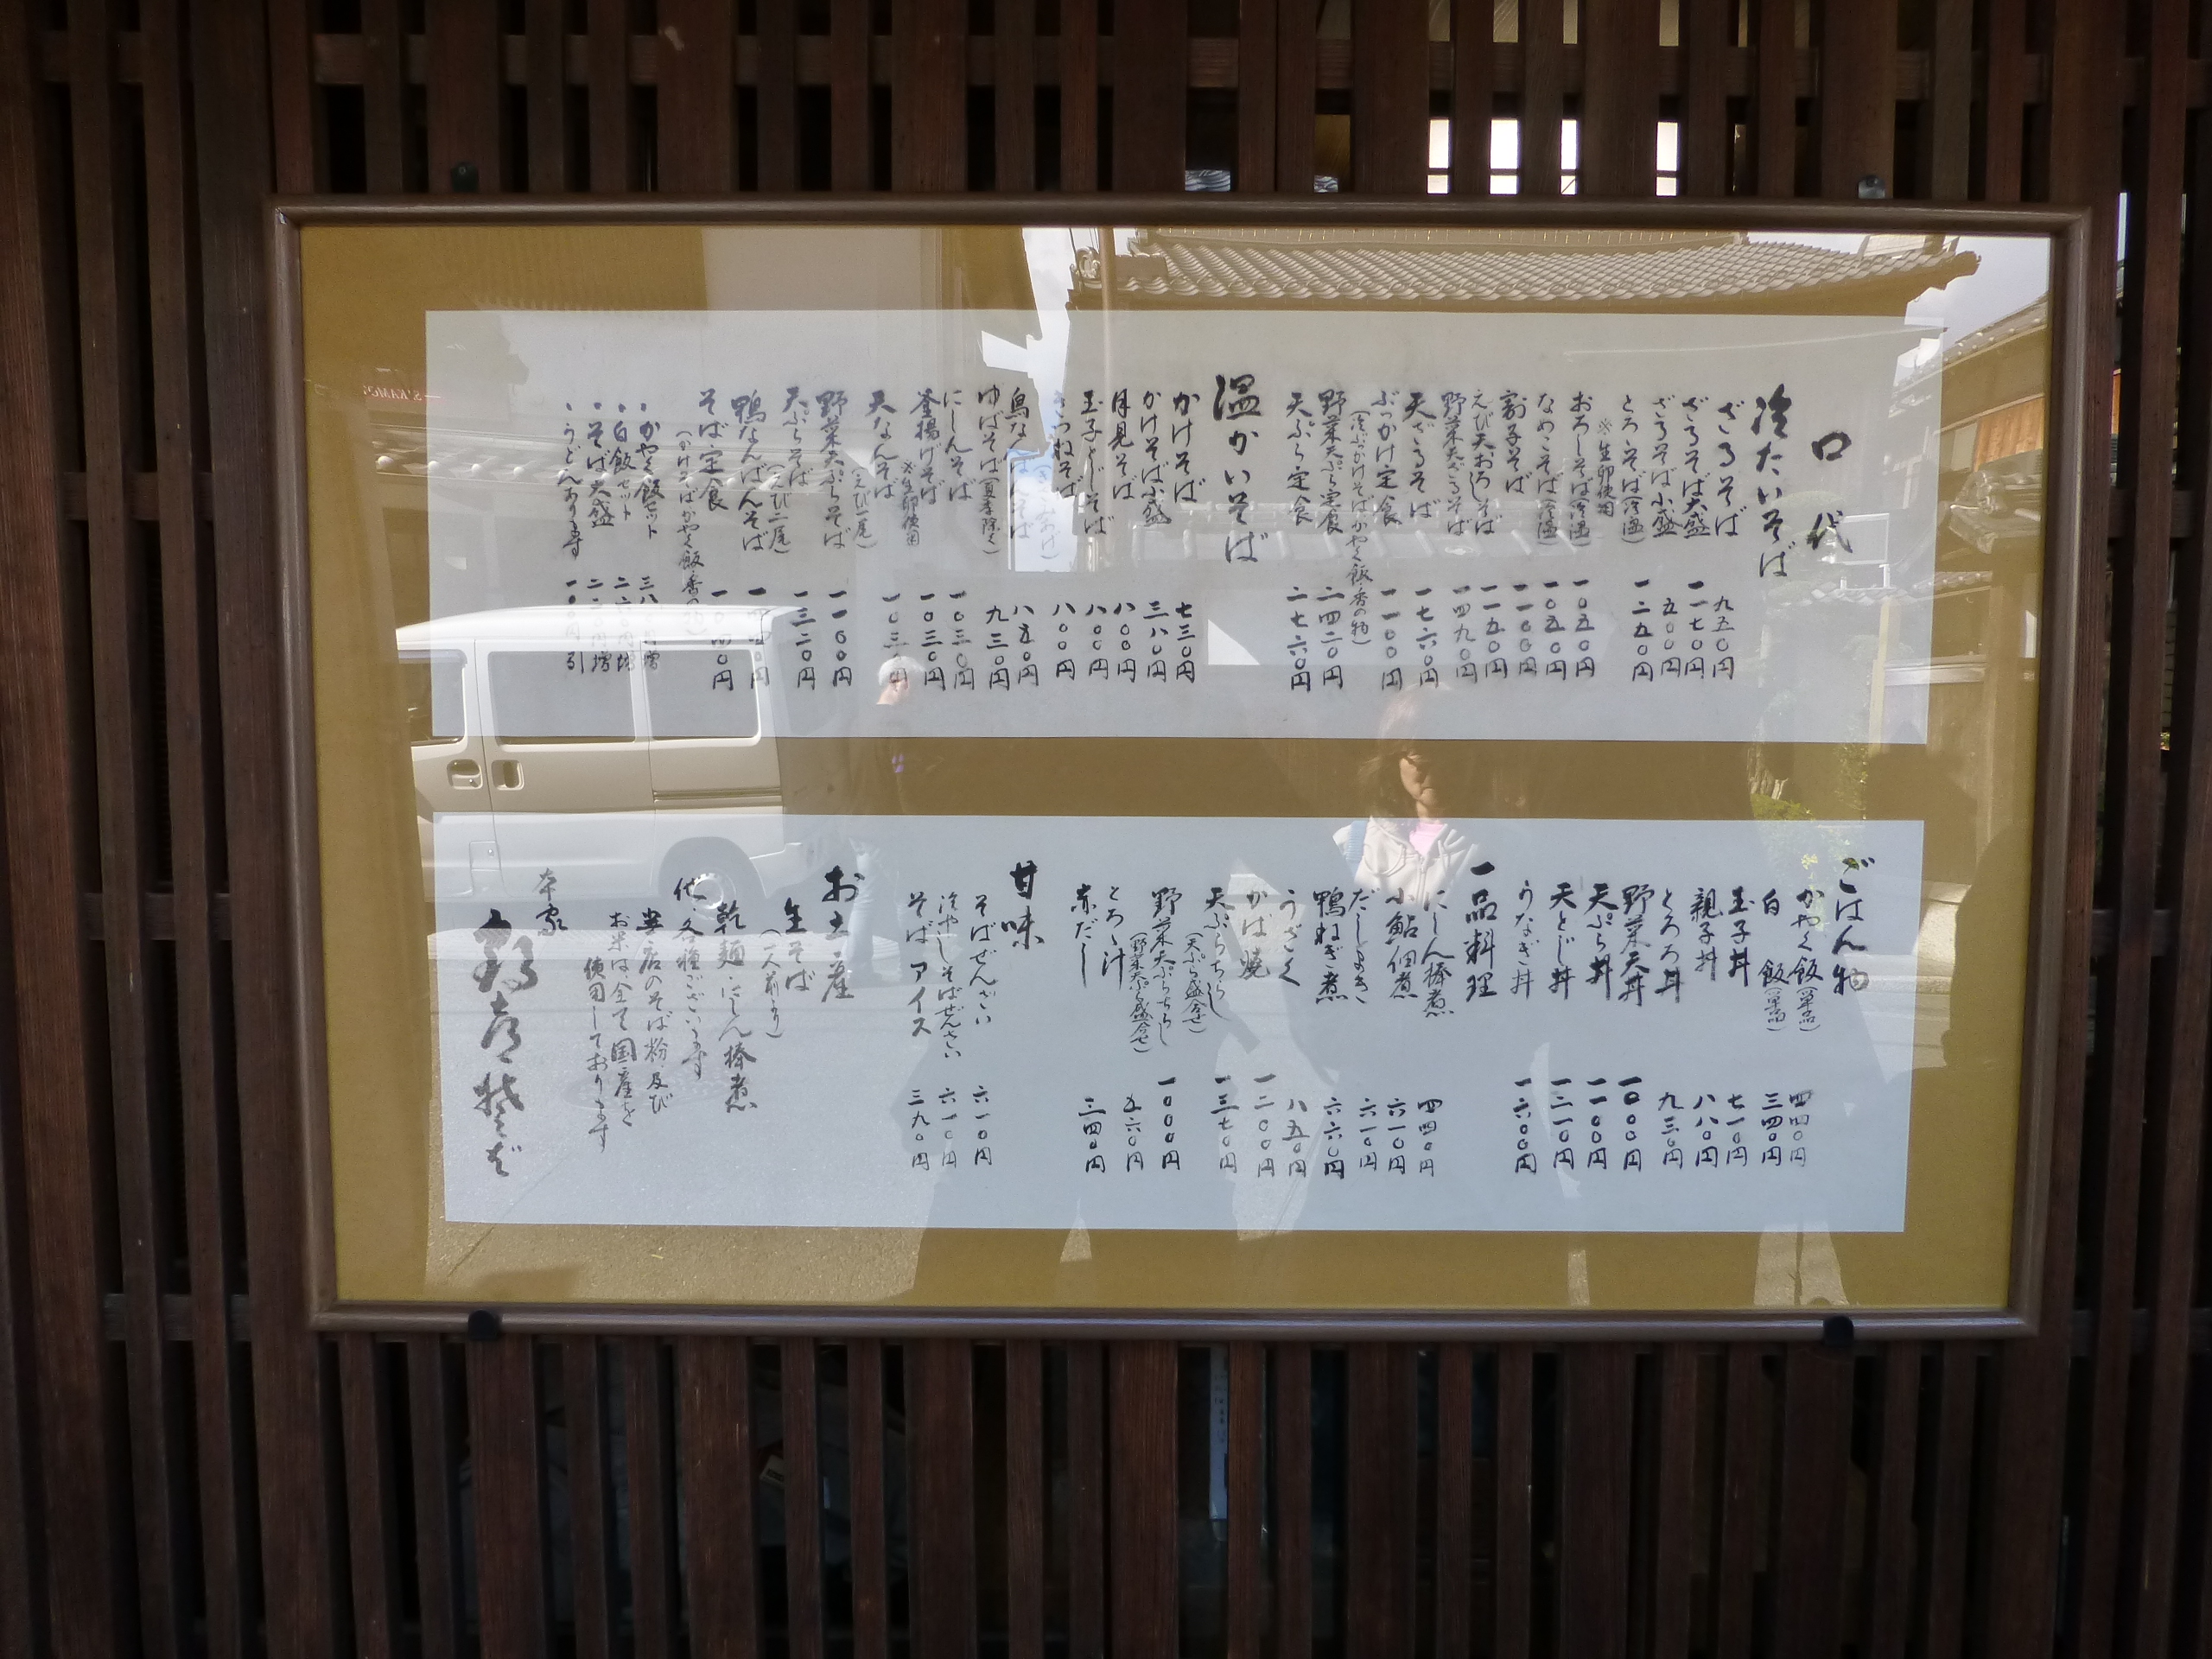 口代
冷たいそば
ざるそば 九五〇円
ざるそば大盛 一一七〇円
ざるそば小盛 五〇〇円
とろゝそば(冷温) 一二五〇円
※生卵使用
おろしそば(冷温) 一〇五〇円
なめこそば(冷温) 一〇五〇円
割子そば 一一〇〇円
えび天おろしそば 一一五〇円
野菜天ざるそば 一四九〇円
天ざるそば 一七六〇円
ぶっかけ定食 一一〇〇円
(冷ぶっかけそばかやく飯・香の物)
野菜天ぷら定食 二四二〇円
天ぷら定食 二七六〇円
温かいそば
かけそば 七三〇円
かけそば小盛 三八〇円
月見そば 八〇〇円
玉子とじそば 八〇〇円
きつねそば 八〇〇円
(きざみあげ)
鳥なんばんそば 八五〇円
ゆばそば(夏季除く) 九三〇円
にしんそば 一〇三〇円
釜揚げそば 一〇三〇円
※生卵使用
天なんそば 一〇三〇円
(えび一尾)
野菜天ぷらそば 一一〇〇円
天ぷらそば 一三二〇円
(えび二尾)
鴨なんばんそば
そば定食 一〇四〇円
(かけそばかやく飯・香の物)
・かやく飯セット 三八〇円増
・白飯セット
・そば大盛
・うどんあります 一〇〇円引
ごはん物
かやく飯(単品) 四四〇円
白飯(単品) 三四〇円
玉子丼 七一〇円
親子丼 八八〇円
とろろ丼 九三〇円
野菜天丼 一〇〇〇円
天ぷら丼 一一〇〇円
天とじ丼 一二一〇円
うなぎ丼 一六〇〇円
一品料理
にしん棒煮 四四〇円
小鮎佃煮 六一〇円
だしまき 六一〇円
鴨ねぎ煮 六六〇円
うざく 八五〇円
かば焼 一二〇〇円
天ぷらちらし 一三七〇円
(天ぷら盛合せ)
野菜天ぷらちらし 一〇〇〇円
(野菜天ぷら盛合せ)
とろゝ汁 五六〇円
赤だし 二四〇円
甘味
そばぜんざい 六一〇円
冷やしそばぜんざい 六一〇円
そばアイス 三九〇円
お土産
生そば
(一人前より)
乾麺・にしん棒煮
他、各種ございます
当店のそば粉、及び
お米は、全て国産を
使用しております
本家